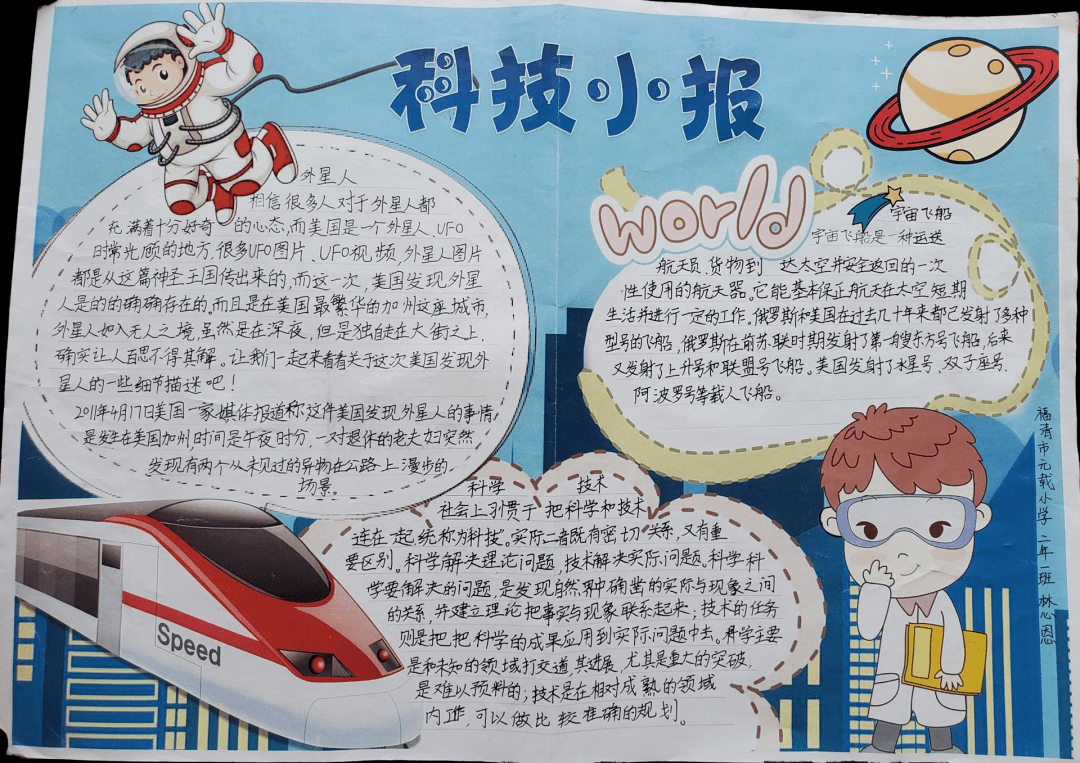 科技小报
外星人
相信很多人对于外星人都
充满着十分好奇的心态,而美国是一个外星人、UFO
时常光顾的地方,很多UFO图片、UFO视频,外星人图片
都是从这篇神圣王国传出来的,而这一次,美国发现外星
人是的的确确存在的,而且是在美国最繁华的加州这座城市,
外星人如入无人之境,虽然是在深夜,但是独自走在大街之上,
确实让人百思不得其解。让我们一起来看看关于这次美国发现外
星人的一些细节描述吧!
2011年4月17日美国一家媒体报道称,这件美国发现外星人的事情
是发生在美国加州,时间是午夜时分,一对退休的老夫妇突然
发现有两个从未见过的异物在公路上漫步的
场景。
world
宇宙飞船
宇宙飞船是一种运送
航天员、货物到达太空并安全返回的一次
性使用的航天器。它能基本保证航天在太空短期
生活并进行一定的工作。俄罗斯和美国在过去几十年来都已发射了多种
型号的飞船,俄罗斯在前苏联时期发射了第一艘东方号飞船,后来
又发射了上升号和联盟号飞船。美国发射了水星号、双子座号、
阿波罗号等载人飞船。
科学 技术
社会上习惯于把科学和技术
连在一起,统称为“科技”。实际二者既有密切关系,又有重
要区别。科学解决理论问题,技术解决实际问题。科学科
学要解决的问题,是发现自然界中确凿的实际与现象之间
的关系,并建立理论把事实与现象联系起来;技术的任务
则是把把科学的成果应用到实际问题中去。科学主要
是和未知的领域打交道,其进展,尤其是重大的突破,
是难以预料的;技术是在相对成熟的领域
内工作,可以做比较准确的规划。
Speed
福清市元载小学 二年一班 林心恩